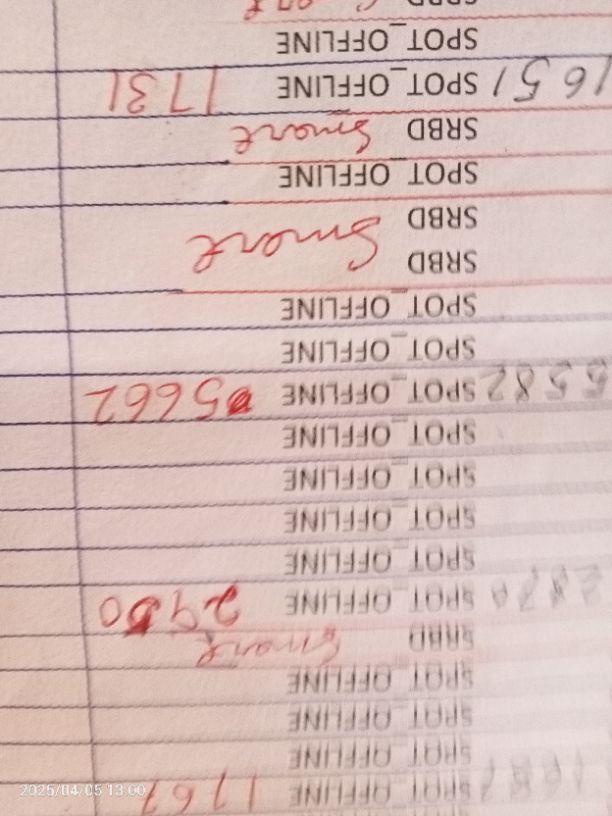 SPOT_OFFLINE 1767
SPOT_OFFLINE
SPOT_OFFLINE
SPOT_OFFLINE
SRBD Smart
2870 SPOT_OFFLINE 2950
SPOT_OFFLINE
SPOT_OFFLINE
SPOT_OFFLINE
SPOT_OFFLINE
5582 SPOT_OFFLINE 5662
SPOT_OFFLINE
SPOT_OFFLINE
SRBD Smart
SRBD
SPOT_OFFLINE
SRBD Smart
1651 SPOT_OFFLINE 1731
SPOT_OFFLINE
SRBD
2025/04/05 13:00